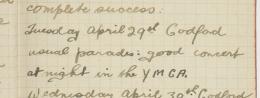 complete success.
Tuesday April 29th Codford
usual parades: good concert
at night in the YMCA.
Wednesday April 30th Codford